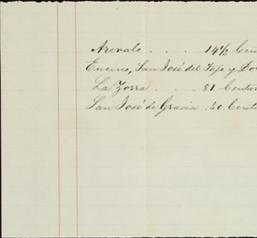 Arevalo . . . 14½ Cen
Encino, San José del Tajo y Do
La Zorra . . . . 81 Centi
San José de Gracia . 30 Centi